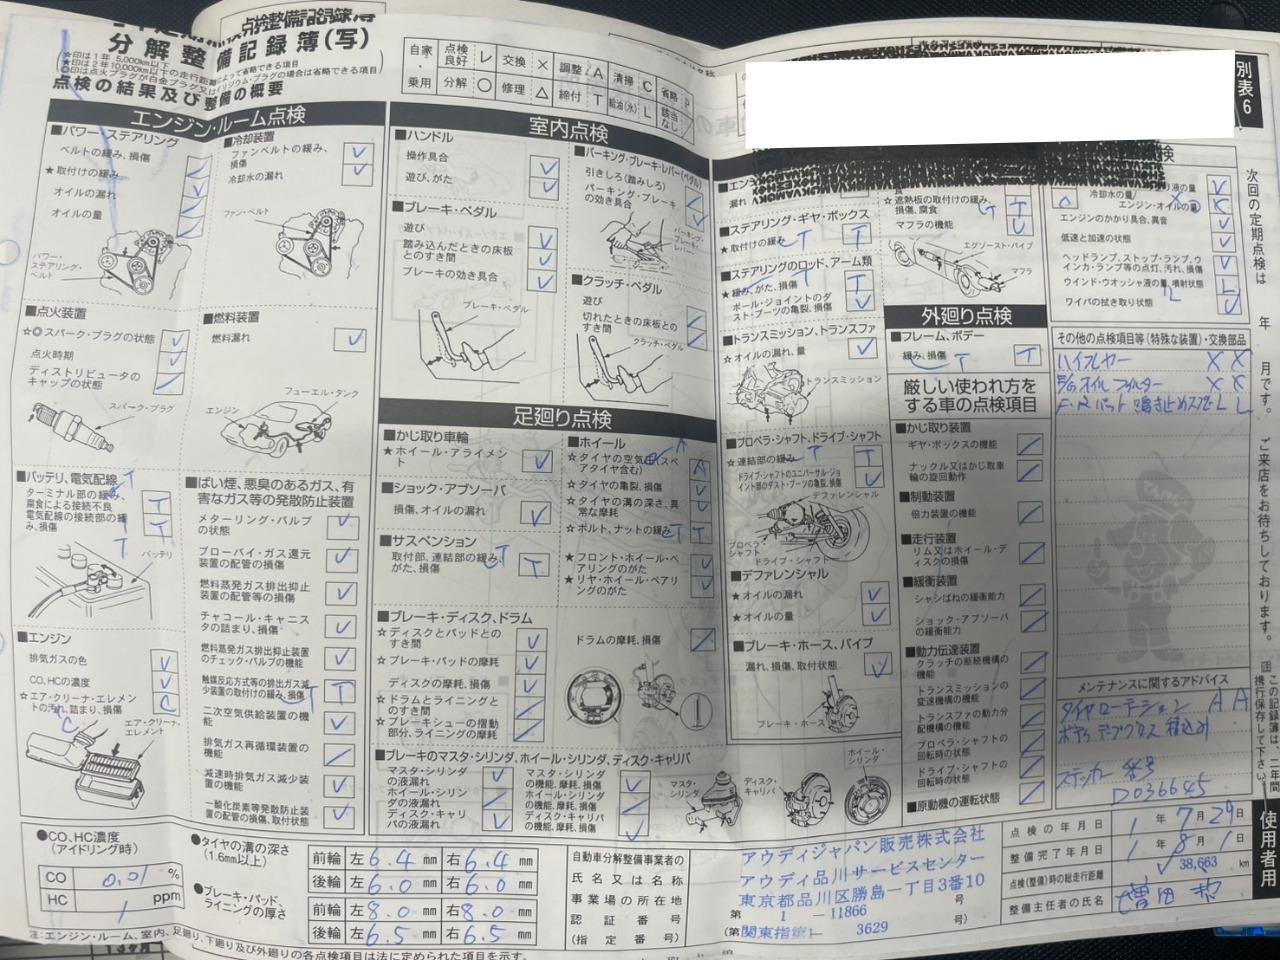 点検整備記録簿
分解整備記録簿(写)
☆印は1年 5,000km以下
★印は2年 10,000km以下の走行距離によって省略できる項目
◎印は点火プラグが白金プラグ又はイリジウム・プラグの場合は省略できる項目
点検の結果及び整備の概要
自家・乗用
点検良好 レ 交換 × 調整 A 清掃 C 省略 P
分解 ○ 修理 △ 締付 T 給油(水) L 該当なし /
別表6
エンジン・ルーム点検
■パワー・ステアリング
ベルトの緩み、損傷
★取付けの緩み
オイルの漏れ
オイルの量
パワー・ステアリング・ベルト
■冷却装置
ファンベルトの緩み、損傷
冷却水の漏れ
ファン・ベルト
■点火装置
☆◎スパーク・プラグの状態
点火時期
ディストリビュータのキャップの状態
スパーク・プラグ
■燃料装置
燃料漏れ
フューエル・タンク
エンジン
■バッテリ、電気配線
ターミナル部の緩み、腐食による接続不良
電気配線の接続部の緩み、損傷
T
バッテリ
■エンジン
排気ガスの色
CO、HCの濃度
☆エア・クリーナ・エレメントの汚れ、詰まり、損傷
エア・クリーナ・エレメント
■ばい煙、悪臭のあるガス、有害なガス等の発散防止装置
メターリング・バルブの状態
ブローバイ・ガス還元装置の配管の損傷
燃料蒸発ガス排出抑止装置の配管等の損傷
チャコール・キャニスタの詰まり、損傷
燃料蒸発ガス排出抑止装置のチェック・バルブの機能
触媒反応方式等の排出ガス減少装置の取付けの緩み、損傷
二次空気供給装置の機能
排気ガス再循環装置の機能
減速時排気ガス減少装置の機能
一酸化炭素等発散防止装置の配管の損傷、取付状態
室内点検
■ハンドル
操作具合
遊び、がた
■ブレーキ・ペダル
遊び
踏み込んだときの床板とのすき間
ブレーキの効き具合
ブレーキ・ペダル
■パーキング・ブレーキ・レバー(ペダル)
引きしろ(踏みしろ)
パーキング・ブレーキの効き具合
パーキング・ブレーキ・レバー
■クラッチ・ペダル
遊び
切れたときの床板とのすき間
クラッチ・ペダル
足廻り点検
■かじ取り車輪
★ホイール・アライメント
■ショック・アブソーバ
損傷、オイルの漏れ
■サスペンション
取付部、連結部の緩み、がた、損傷
■ホイール
☆タイヤの空気圧(スペアタイヤ含む)
☆タイヤの亀裂、損傷
☆タイヤの溝の深さ、異常な摩耗
☆ボルト、ナットの緩み
★フロント・ホイール・ベアリングのがた
★リヤ・ホイール・ベアリングのがた
■ブレーキ・ディスク、ドラム
☆ディスクとパッドとのすき間
☆ブレーキ・パッドの摩耗
ディスクの摩耗、損傷
☆ドラムとライニングとのすき間
☆ブレーキシューの摺動部分、ライニングの摩耗
ドラムの摩耗、損傷
■ブレーキのマスタ・シリンダ、ホイール・シリンダ、ディスク・キャリパ
マスタ・シリンダの液漏れ
ホイール・シリンダの液漏れ
ディスク・キャリパの液漏れ
マスタ・シリンダの機能、摩耗、損傷
ホイール・シリンダの機能、摩耗、損傷
ディスク・キャリパの機能、摩耗、損傷
マスタ・シリンダ
ディスク・キャリパ
ホイール・シリンダ
漏れ
■ステアリング・ギヤ・ボックス
★取付けの緩み
■ステアリングのロッド、アーム類
★緩み、がた、損傷
ボール・ジョイントのダスト・ブーツの亀裂、損傷
■トランスミッション、トランスファ
☆オイルの漏れ、量
トランスミッション
■プロペラ・シャフト、ドライブ・シャフト
★連結部の緩み
ドライブ・シャフトのユニバーサル・ジョイント部のダスト・ブーツの亀裂、損傷
デファレンシャル
プロペラ・シャフト
ドライブ・シャフト
■デファレンシャル
★オイルの漏れ
★オイルの量
■ブレーキ・ホース、パイプ
漏れ、損傷、取付状態
ブレーキ・ホース
☆遮熱板の取付けの緩み、損傷、腐食
マフラの機能
エグゾースト・パイプ
マフラ
外廻り点検
■フレーム、ボデー
緩み、損傷
厳しい使われ方をする車の点検項目
■かじ取り装置
ギヤ・ボックスの機能
ナックル又はかじ取車輪の旋回動作
■制動装置
倍力装置の機能
■走行装置
リム又はホイール・ディスクの損傷
■緩衝装置
シャシばねの緩衝能力
ショック・アブソーバの緩衝能力
■動力伝達装置
クラッチの断続機構の機能
トランスミッションの変速機構の機能
トランスファの動力分配機構の機能
プロペラ・シャフトの回転時の状態
ドライブ・シャフトの回転時の状態
■原動機の運転状態
冷却水の量
エンジン・オイルの量
エンジンのかかり具合、異音
低速と加速の状態
ヘッドランプ、ストップ・ランプ、ウインカ・ランプ等の点灯、汚れ、損傷
ウインド・ウオッシャ液の量、噴射状態
ワイパの拭き取り状態
その他の点検項目等(特殊な装置)・交換部品
ワイパー × ×
E/G オイル フィルター × ×
F・Rパット 鳴き止め L L
メンテナンスに関するアドバイス
タイヤローテーション A A
ステッカー 番号
D036645
次回の定期点検は 年 月です。ご来店をお待ちしております。
この記録簿は、二年間携行保存して下さい。
使用者用
●CO、HC濃度(アイドリング時)
CO 0.01 %
HC 1 ppm
●タイヤの溝の深さ(1.6mm以上)
前輪 左 6.4 mm 右 6.4 mm
後輪 左 6.0 mm 右 6.0 mm
●ブレーキ・パッド、ライニングの厚さ
前輪 左 8.0 mm 右 8.0 mm
後輪 左 6.5 mm 右 6.5 mm
自動車分解整備事業者の
氏名又は名称
事業場の所在地
認証番号
(指定番号)
アウディジャパン販売株式会社
アウディ品川サービスセンター
東京都品川区勝島一丁目3番10号
第 1 — 11866 号
(第 関東指第1— 3629 号)
点検の年月日 1年7月29日
整備完了年月日 1年8月1日
点検(整備)時の総走行距離 38,663 km
整備主任者の氏名 増田
注:エンジン・ルーム、室内、足廻り、下廻り及び外廻りの各点検項目は法に定められた項目を示す。